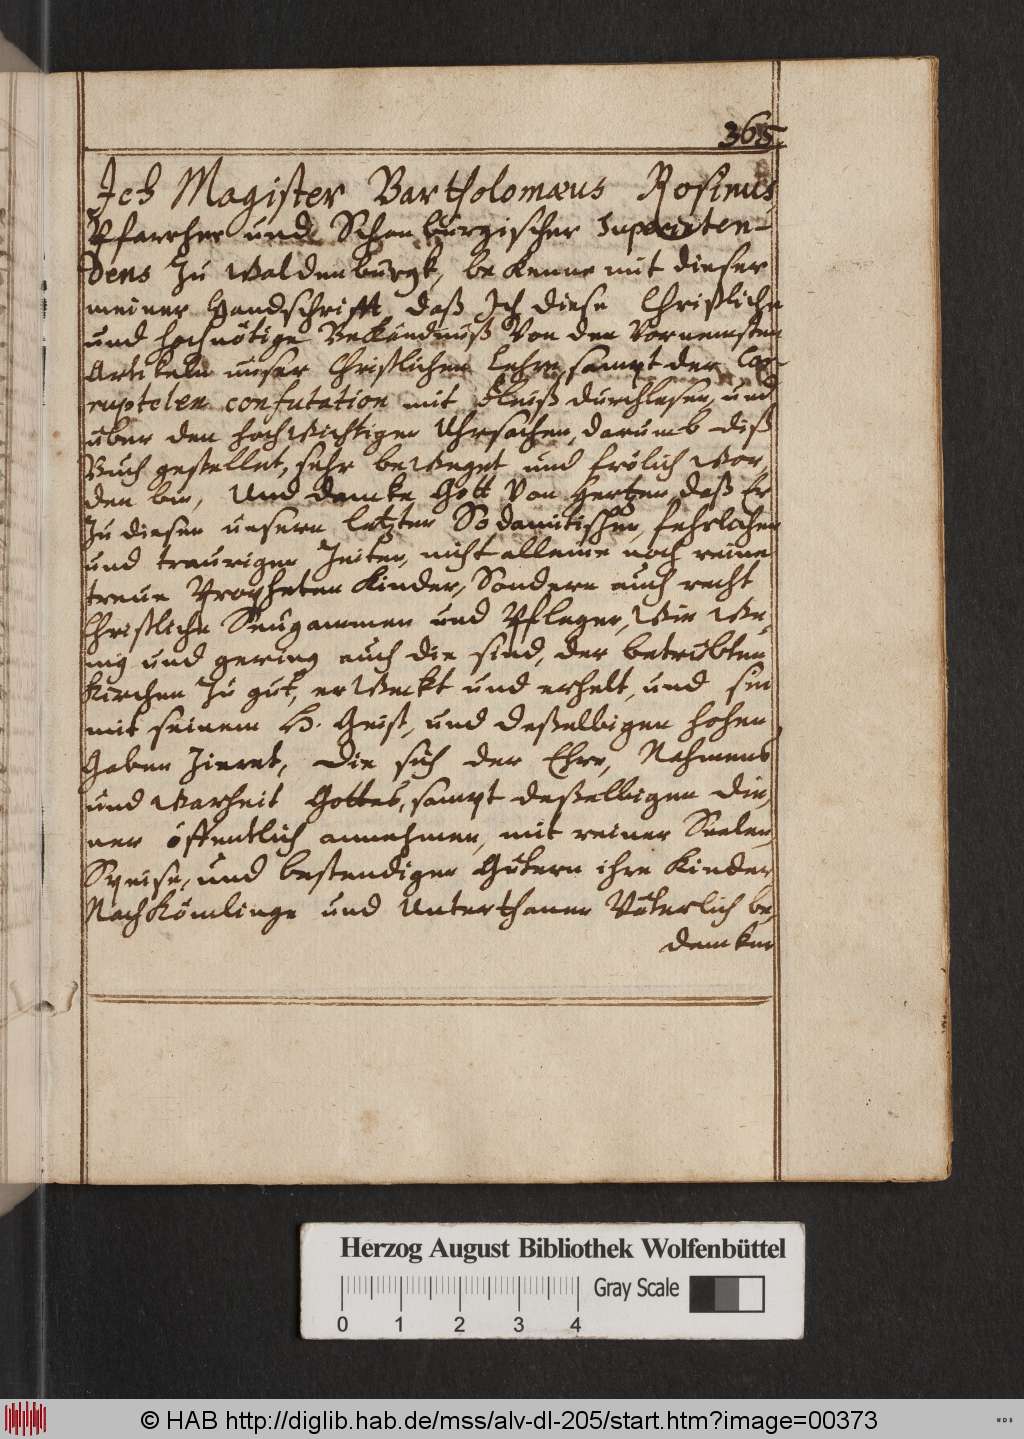 365.
Ich Magister Bartholomæus Rosinus
Pfarrher und Schonburgischer Superiten-
dens Zu Waldenburgk, bekenne mit dieser
meiner Handschrifft, daß Ich diese Christliche
und hochnötige Bekändnüß Von den Vornemsten
Artikeln unser Christlichen Lehre, sampt der Cor-
ruptelen confutation mit fleiß durchlesen, und
uber den hochwichtigen Uhrsachen, darumb diß
Buch gestellet, sehr beweget und frölich wor,
den bin, Und dancke Gott Von Hertzen, daß Er
Zu diesen unsern letzten Sodamitischen, fehrlichen
und traurigen Zeiten, nicht alleine noch reine
treue Propheten Kinder, Sondern auch recht
Christliche Seugammen und Pfleger, Wie We,
nig und gering auch die sind, der betrübten
Kirchen Zu gut, erweckt und erhelt, und sie
mit seinem H. Geist, und deßelbigen hohen
Gaben Zieret, die sich der Ehre, Nahmens
und Warheit Gottes, sampt deßelbigen Die,
ner öffentlich annehmen, mit reiner Seelen
Speise, und bestendigen Gütern ihre Kinder
Nachkömlinge und Unterthanen Väterlich be,
dencken
Herzog August Bibliothek Wolfenbüttel
Gray Scale
0 1 2 3 4
© HAB http://diglib.hab.de/mss/alv-dl-205/start.htm?image=00373